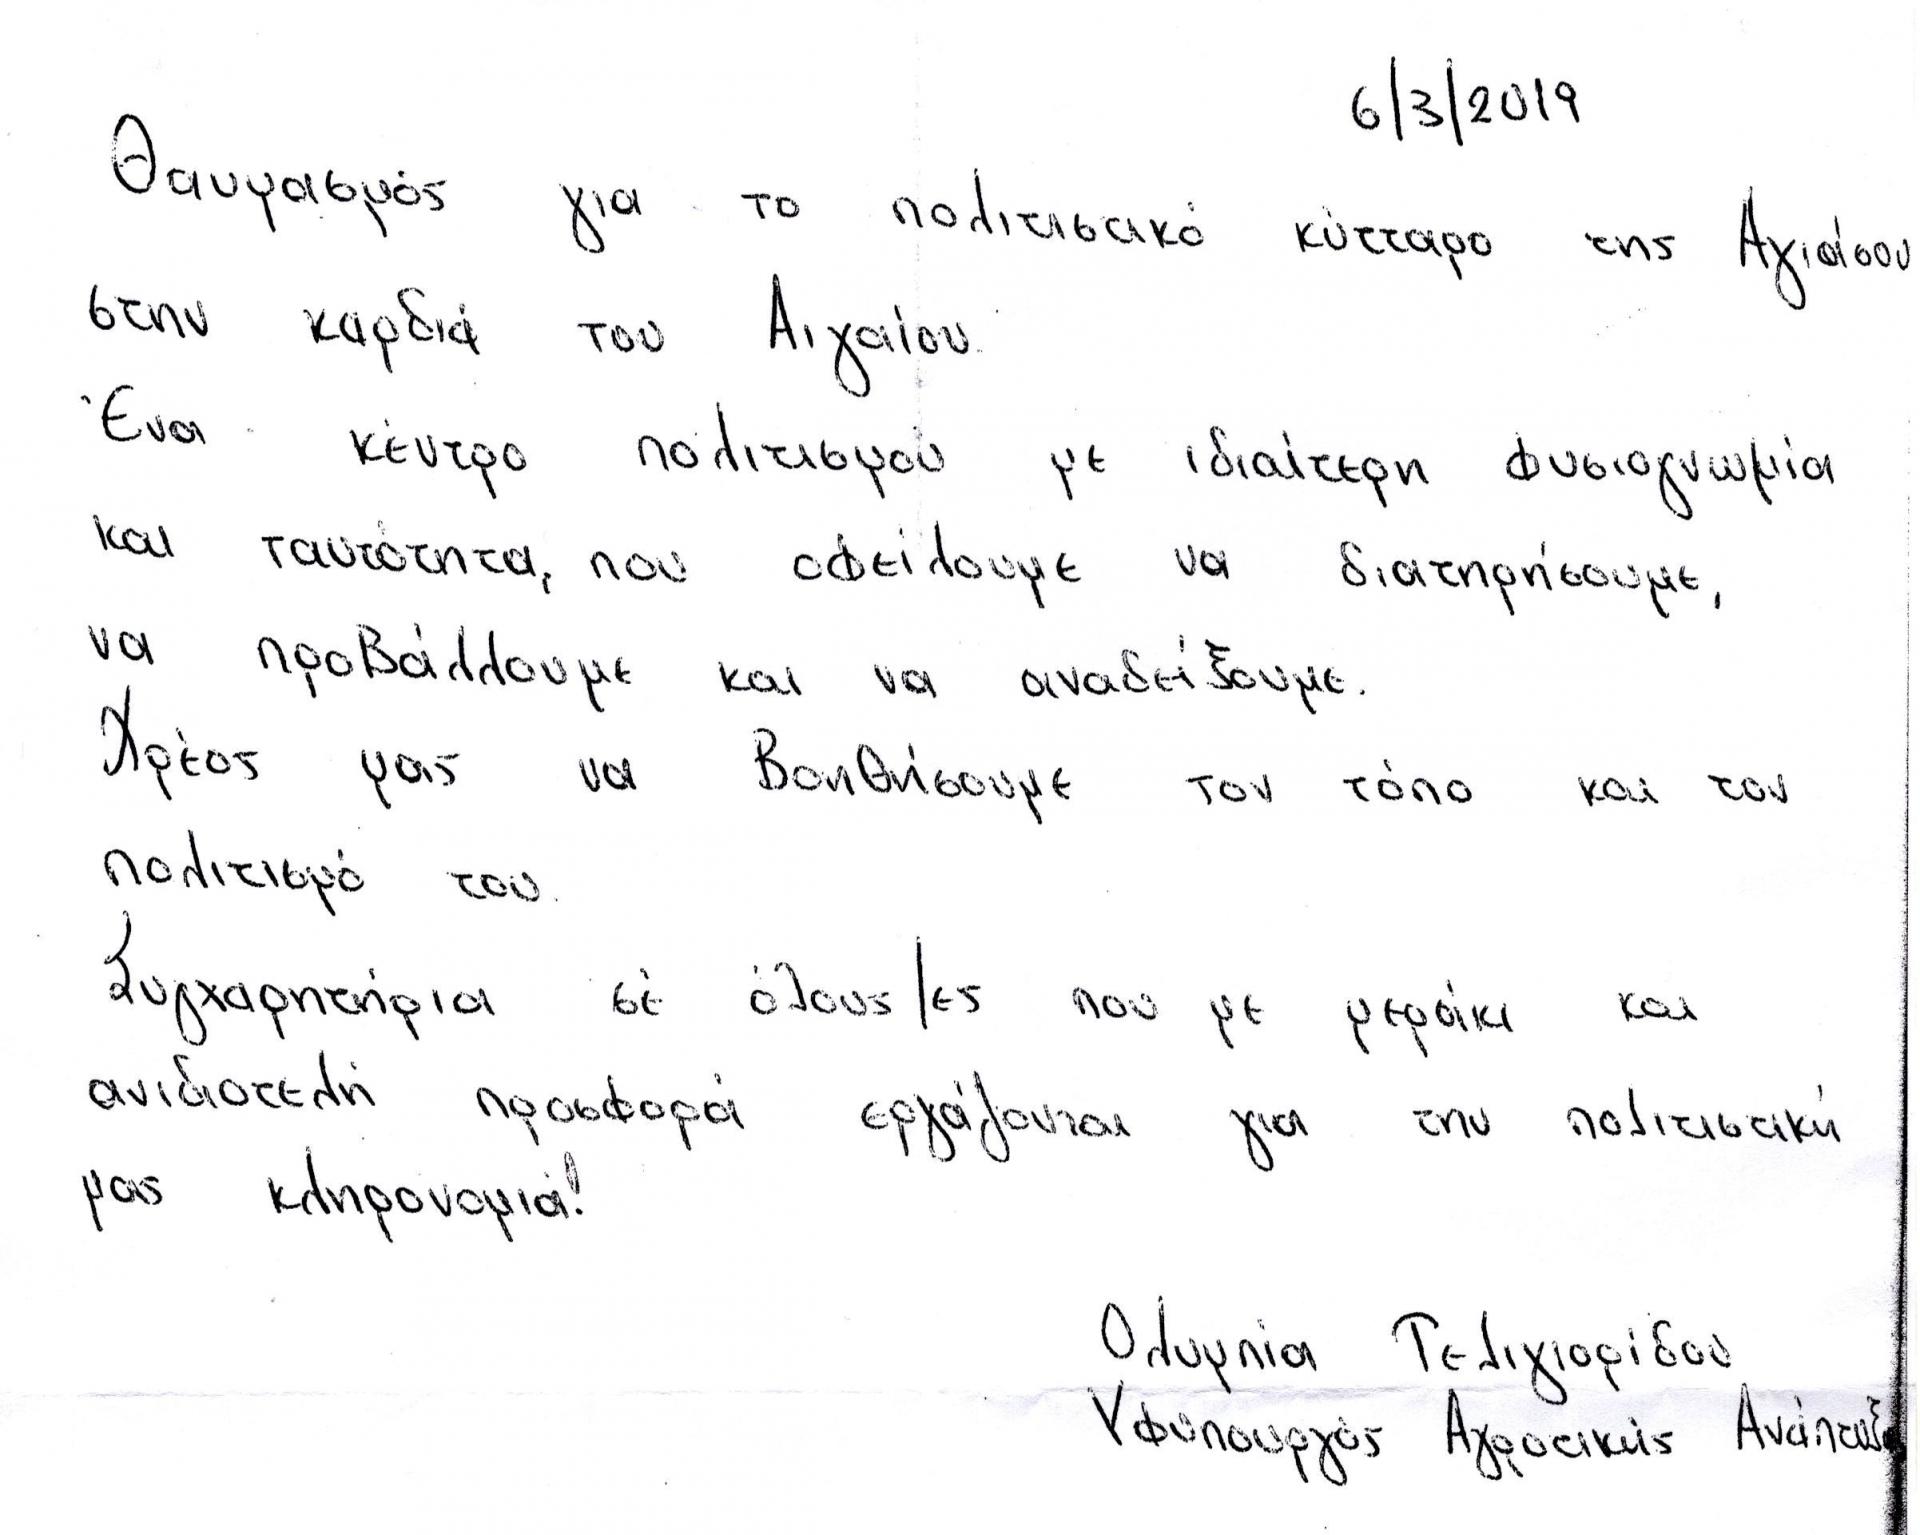 6/3/2019
Θαυμασμός για το πολιτιστικό κύτταρο της Αγιάσου
στην καρδιά του Αιγαίου.
Ένα κέντρο πολιτισμού με ιδιαίτερη φυσιογνωμία
και ταυτότητα, που οφείλουμε να διατηρήσουμε,
να προβάλλουμε και να αναδείξουμε.
Χρέος μας να βοηθήσουμε τον τόπο και τον
πολιτισμό του.
Συγχαρητήρια σέ όλους/ες που με μεράκι και
ανιδιοτελή προσφορά εργάζονται για την πολιτιστική
μας κληρονομιά!
Ολυμπία Τελιγιορίδου
Υφύπουργός Αγροτικής